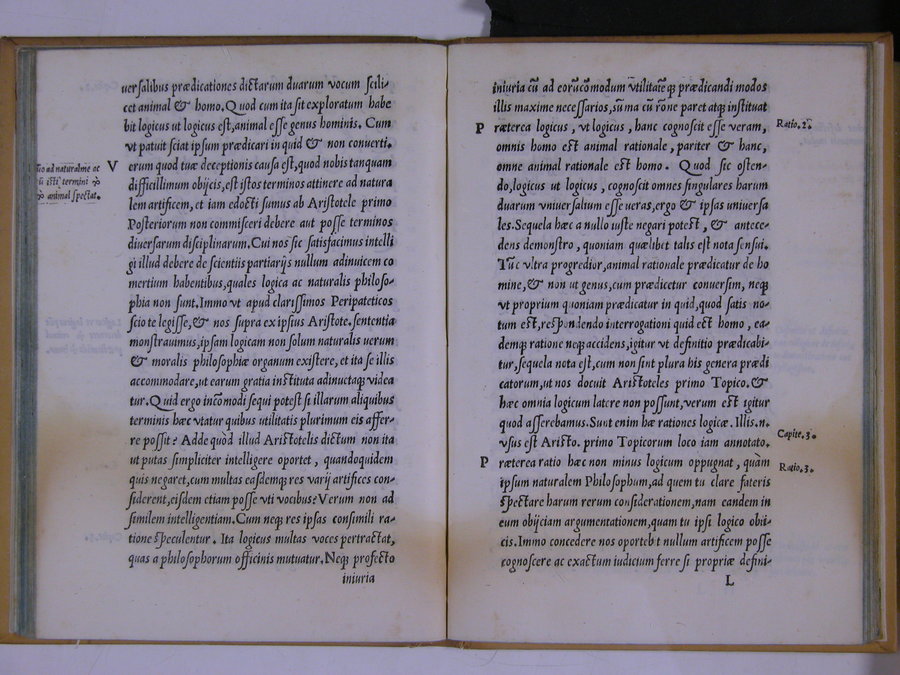 uersalibus prædicationes dictarum duarum vocum scili-
cet animal & homo. Quod cum ita sit exploratum habe
bit logicus ut logicus est, animal esse genus hominis. Cum
vt patuit sciat ipsum prædicari in quid & non conuerti.
V erum quod tuæ deceptionis causa est, quod nobis tanquam
difficillimum obijcis, est istos terminos attinere ad natura
lem artificem, et iam edocti sumus ab Aristotele primo
Posteriorum non commisceri debere aut posse terminos
diuersarum disciplinarum. Cui nos sic satisfacimus intelli
gi illud debere de scientiis partiarijs nullum adinuicem co
mertium habentibus, quales logica ac naturalis philoso-
phia non sunt. Immo vt apud clarissimos Peripateticos
scio te legisse, & nos supra ex ipsius Aristote. sententia
monstrauimus, ipsam logicam non solum naturalis uerum
& moralis philosophiæ organum existere, et ita se illis
accommodare, ut earum gratia instituta adinuctaq; videa
tur. Quid ergo incōmodi sequi potest si illarum aliquibus
terminis hæc vtatur quibus utilitatis plurimum eis affer-
re possit? Adde quòd illud Aristotelis dictum non ita
ut putas simpliciter intelligere oportet, quandoquidem
quis negaret, cum multas easdemq; res varij artifices con-
siderent, eisdem etiam posse vti vocibus? Verum non ad
similem intelligentiam. Cum neq; res ipsas consimili ra-
tione speculentur. Ita logicus multas voces pertractat,
quas a philosophorum officinis mutuatur. Neq; profecto
iniuria
ad naturalme ac
termini
animal spectat.
iniuria cū ad eorū cōmodum vtilitatēq; prædicandi modos
illis maxime necessarios, sūma cū rōne paret atq; instituat
P ræterea logicus, vt logicus, hanc cognoscit esse veram,
omnis homo est animal rationale, pariter & hanc,
omne animal rationale est homo. Quod sic osten-
do, logicus ut logicus, cognoscit omnes singulares harum
duarum vniuersalium esse ueras, ergo & ipsas uniuersa
les. Sequela hæc a nullo iuste negari potest, & antece-
dens demonstro, quoniam quælibet talis est nota sensui.
Tūc vltra progredior, animal rationale prædicatur de ho
mine, & non ut genus, cum prædicetur conuersim, neq;
vt proprium quoniam prædicatur in quid, quod satis no-
tum est, respondendo interrogationi quid est homo, ea-
demq; ratione neq; accidens, igitur vt definitio prædicabi-
tur, sequela nota est, cum non sint plura his genera prædi
catorum, ut nos docuit Aristoteles primo Topico. &
hæc omnia logicum latere non possunt, verum est igitur
quod asserebamus. Sunt enim hæ rationes logicæ. Illis.n.
vsus est Aristo. primo Topicorum loco iam annotato.
P ræterea ratio hæc non minus logicum oppugnat, quàm
ipsum naturalem Philosophum, ad quem tu clare fateris
spectare harum rerum considerationem, nam eandem in
eum obijciam argumentationem, quam tu ipsi logico obii-
cis. Immo concedere nos oportebit nullum artificem posse
cognoscere ac exactum iudicium ferre si propriæ defini-
L
Ratio.2.
Capite.3.
Ratio.3.